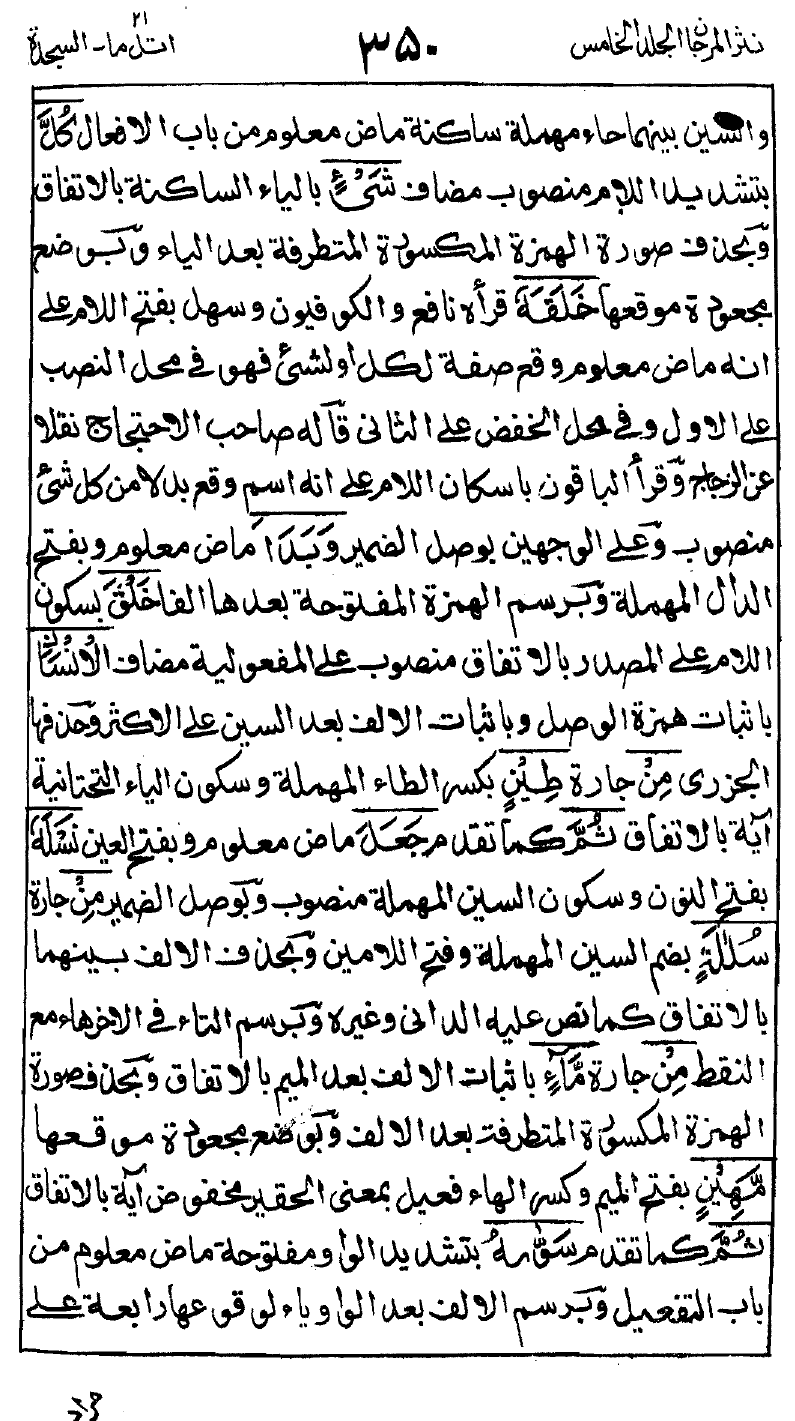 نثر المرجان الجلد الخامس ٣٥٠ اتل ما۔ السجدة ٢١
والسين بينهما حاء مهملة ساكنة ماض معلوم من باب الافعال كُلَّ
بتشديد اللام منصوب مضاف شَیْءٍ بالياء الساكنة بالاتفاق
وبحذف صورة الهمزة المكسورة المتطرفة بعد الياء وبوضع
مجعودة موقعها خَلَقَهٗ قرأه نافع والكوفيون وسهل بفتح اللام على
انه ماض معلوم وقع صفة لكل اولشئ فهو في محل النصب
على الاول وفي محل الخفض على الثانى قاله صاحب الاحتجاج نقلا
عن الزجاج وقرأ الباقون باسكان اللام على انه اسم وقع بدلا من كل شئ
منصوب وعلى الوجهين بوصل الضمير وَبَدَاَ ماض معلوم وبفتح
الدال المهملة وبرسم الهمزة المفتوحة بعدها الفا خَلْقَ بسكون
اللام على المصدر بالاتفاق منصوب على المفعولية مضاف الْاِنْسَانِ
باثبات همزة الوصل وباثبات الالف بعد السين على الاكثر وحذفها
الجزرى مِنْ جارة طِيْنٍ بكسر الطاء المهملة وسكون الياء التحتانية
آية بالاتفاق ثُمَّ كما تقدم جَعَلَ ماض معلوم وبفتح العين نَسْلَهٗ
بفتح النون وسكون السين المهملة منصوب وبوصل الضمير مِنْ جارة
سُلٰلَةٍ بضم السين المهملة وفتح اللامين وبحذف الالف بينهما
بالاتفاق كما نص عليه الدانى وغيره وبرسم التاء في الاخر هاء مع
النقط مِنْ جارة مَّآءٍ باثبات الالف بعد الميم بالاتفاق وبحذف صورة
الهمزة المكسورة المتطرفة بعد الالف وبوضع مجعودة موقعها
مَّهِيْنٍ بفتح الميم وكسر الهاء فعيل بمعنى الحقير مخفوض آية بالاتفاق
ثُمَّ كما تقدم سَوّٰىهُ بتشديد الواو مفتوحة ماض معلوم من
باب التفعيل وبرسم الالف بعد الواو ياء لوقوعها رابعة على